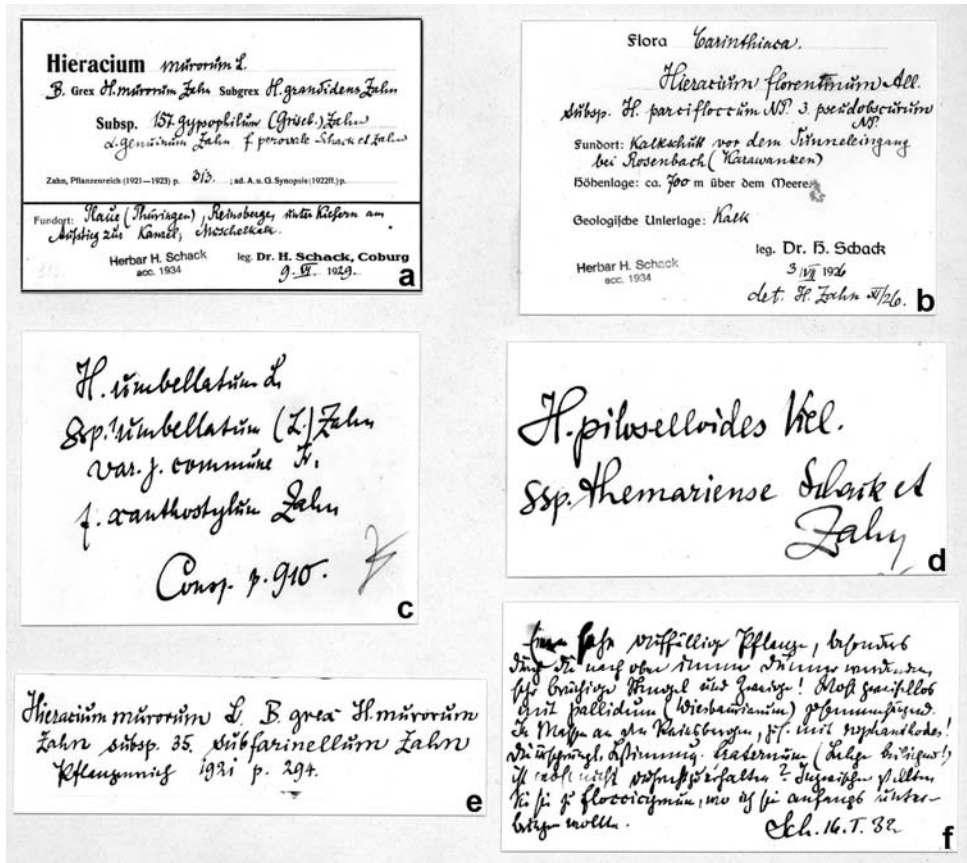 Hieracium murorum L.
B. Grex H. murorum Zahn Subgrex H. grandidens Zahn
Subsp. 157. gypsophilum (Griseb.) Zahn
α. genuinum Zahn f. perovale Schack et Zahn
Zahn, Pflanzenreich (1921—1923) p. 313. ; ad. A. u. G. Synopsis (1922ff.) p.
Fundort: Plaue (Thüringen), Reinsberge, unter Kiefern am
Aufstieg zur Kanzel, Muschelkalk.
Herbar H. Schack
acc. 1934
leg. Dr. H. Schack, Coburg
9. VI. 1929.
a
Flora Carinthiaca.
Hieracium florentinum All.
subsp. H. parcifloccum NP. 3. pseudobscurum
NP.
Fundort: Kalkschutt vor dem Tunneleingang
bei Rosenbach (Karawanken)
Höhenlage: ca. 700 m über dem Meere.
Geologische Unterlage: Kalk
leg. Dr. H. Schack
Herbar H. Schack
acc. 1934
3 VII 1926
det. H. Zahn XI/26.
b
H. umbellatum L.
ssp. umbellatum (L.) Zahn
var. j. commune Fr.
f. xanthostylum Zahn
Consp. p. 910.
c
H. piloselloides Vill.
ssp. themariense Schack et
Zahn
d
Hieracium murorum L. B. grex H. murorum
Zahn subsp. 35. subfarinellum Zahn
Pflanzenreich 1921 p. 294.
e
auffällige Pflanze, besonders
durch die nach oben immer dünner werdenden,
sehr brüchige Stengel und Zweige! Wohl zweifellos
mit pallidum (Wiesbaurianum) zusammenhängend.
In Massen an den Reinsbergen, zus. mit
Bestimmung fraternum
ist wohl nicht aufrechtzuerhalten? Inzwischen stellten
Sie sie zu floccicymum, wo ich sie anfangs unter-
bringen wollte.
Sch. 16. I. 32
f